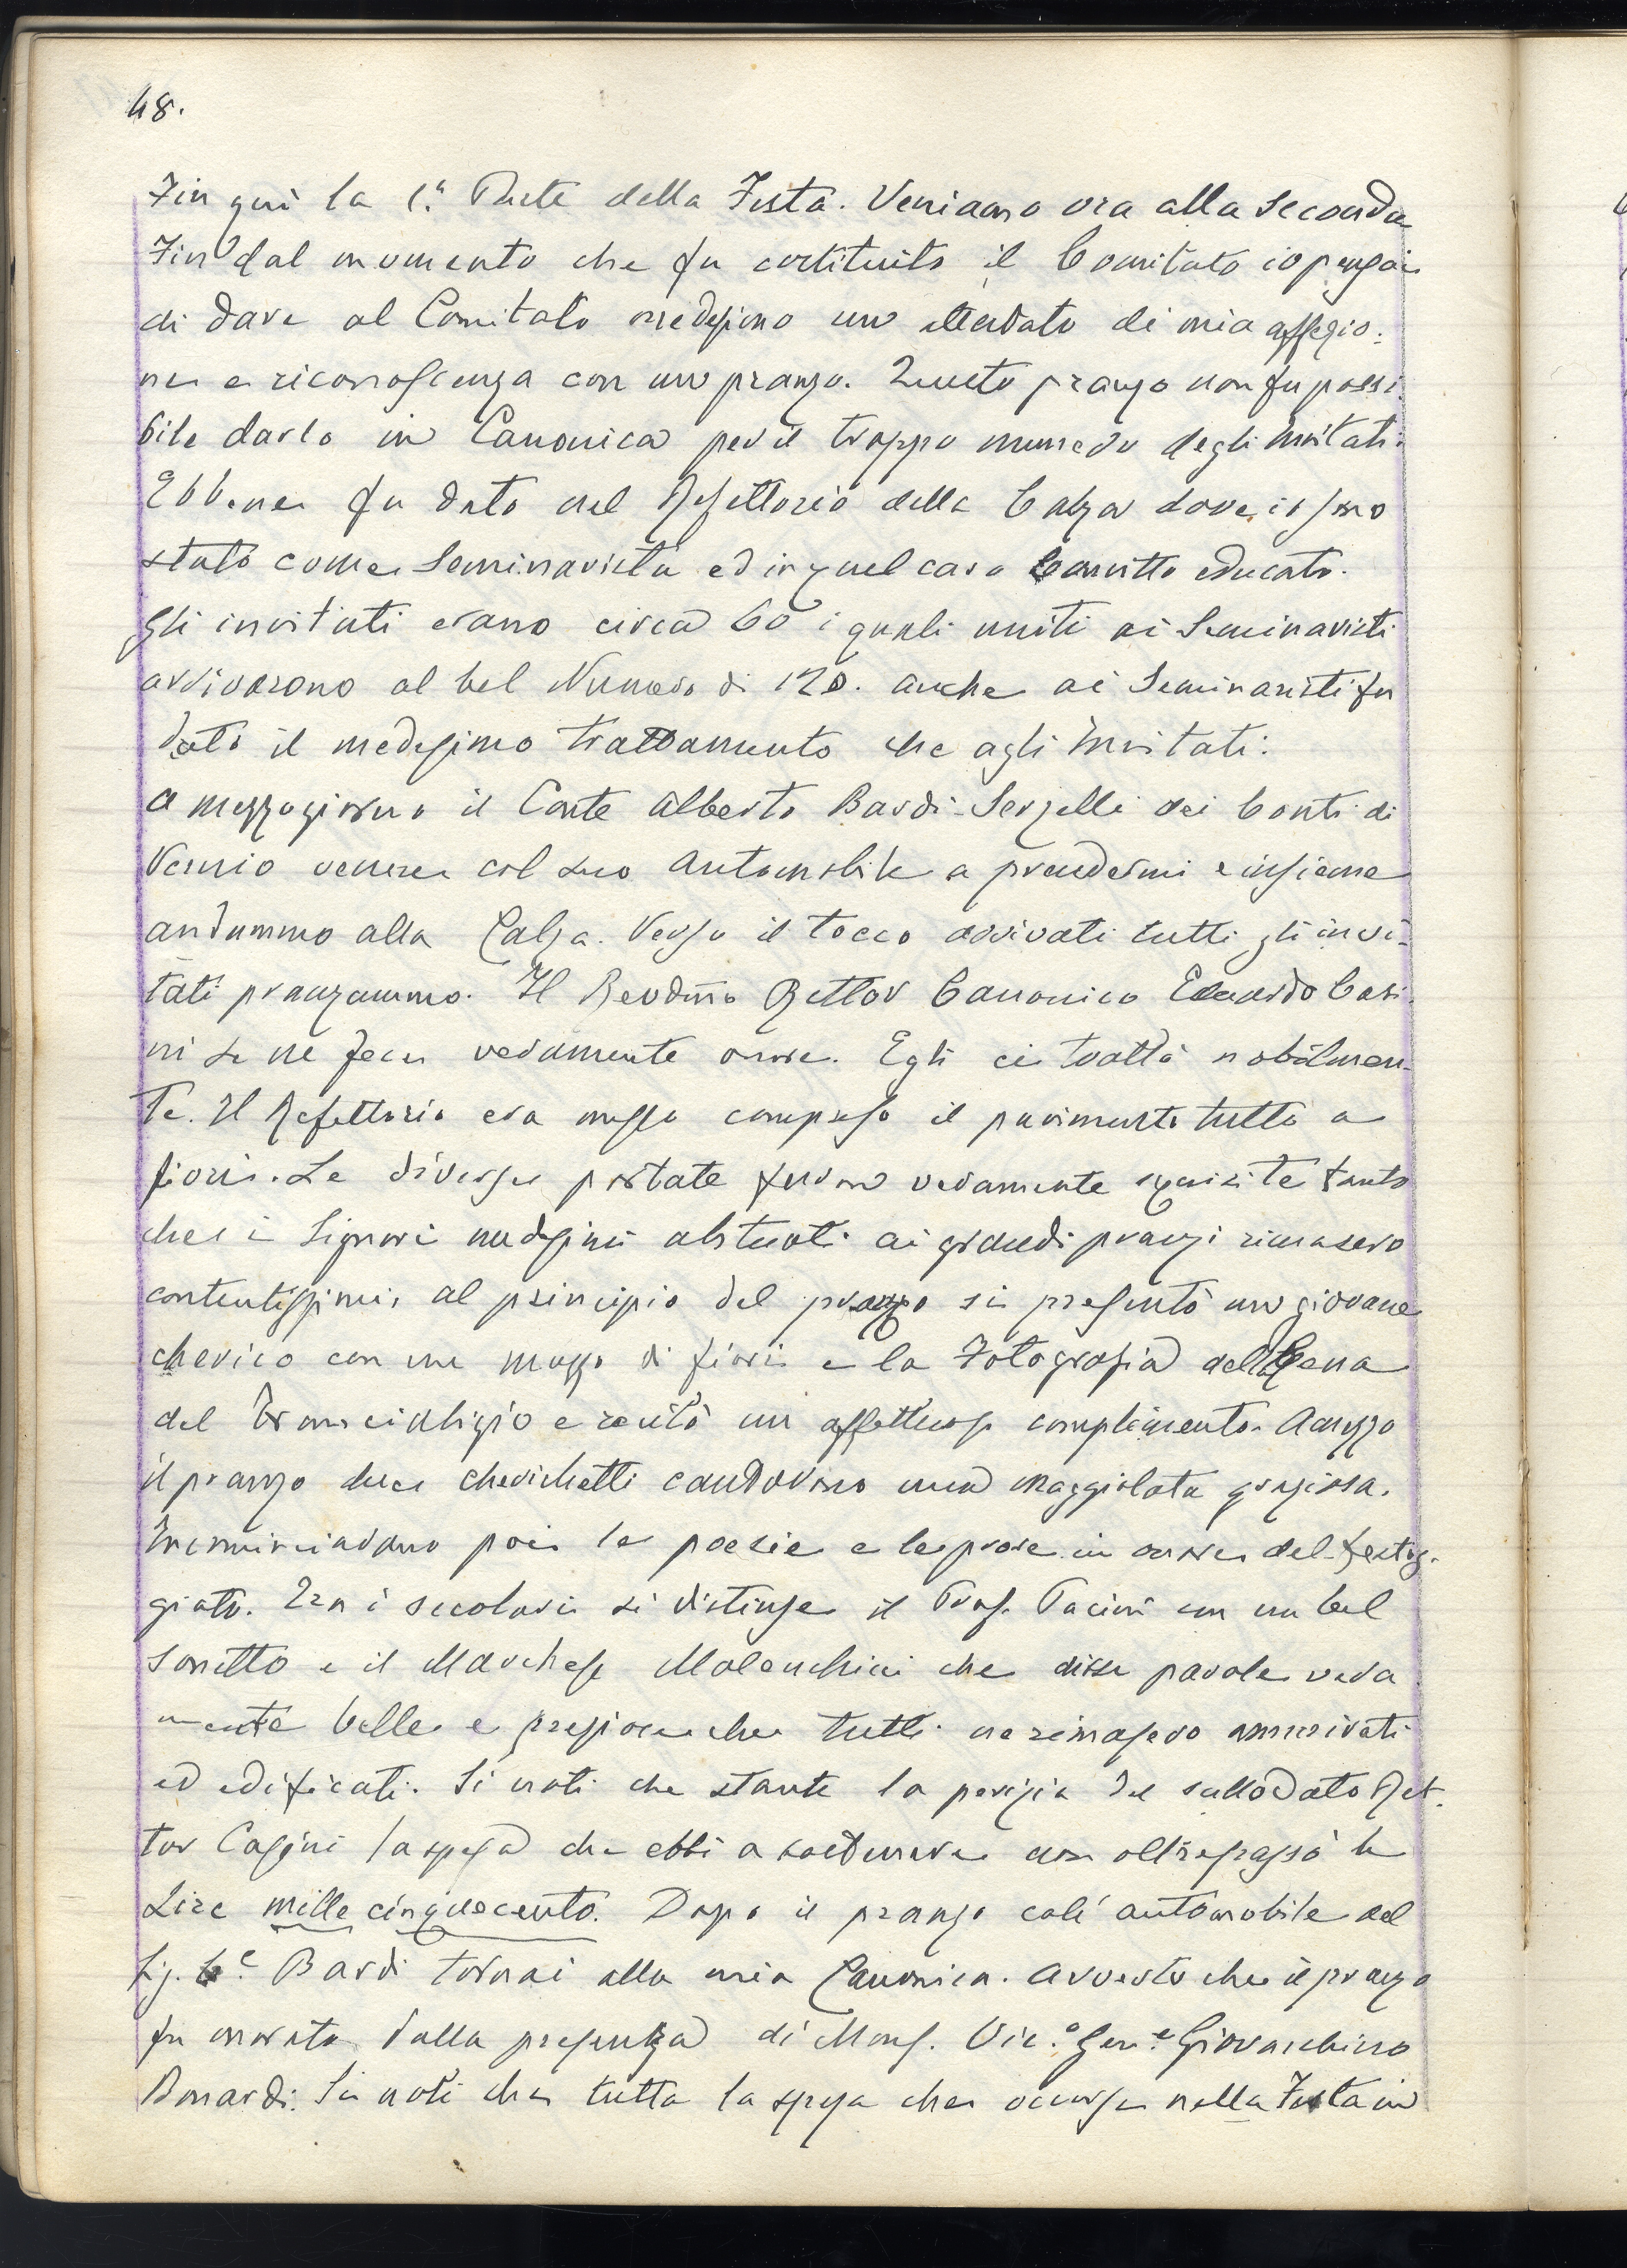 48.
Fin quì la 1.ª Parte della Festa. Veniamo ora alla seconda
Fin dal momento che fu costituito il Comitato io pensai
di dare al Comitato medesimo un attestato di mia affezio-
ne e riconoscenza con un pranzo. Questo pranzo non fu possi-
bile darlo in Canonica per il troppo numero degli invitati.
Ebbene fu dato nel Refettorio della Calza dove io sono
stato come Seminarista ed in quel caro Convitto educato.
Gli invitati erano circa 60 i quali uniti ai Seminaristi
arrivarono al bel Numero di 120. Anche ai Seminaristi fu
dato il medesimo trattamento che agli invitati.
A mezzogiorno il Conte Alberto Bardi-Serzelli dei Conti di
Vernio venne col suo Automobile a prendermi e insieme
andammo alla Calza. Verso il tocco arrivati tutti gli invi-
tati pranzammo. Il Revdmo Rettor Canonico Eduardo Casi-
ni se ne fece veramente onore. Egli ci trattò nobilmen-
te. Il Refettorio era messo compreso il pavimento tutto a
fiori. Le diverse portate furon veramente squisite tanto
che i Signori medesimi abituati ai grandi pranzi rimasero
contentissimi. Al principio del pranzo si presentò un giovane
cherico con un mazzo di fiori e la Fotografia della Cena
del Franciabigio e recitò un affettuoso complimento. A mezzo
il pranzo due cherichetti cantarono una maggiolata graziosa.
Incominciarono poi le poesie e le prose in onore del festeg-
giato. Fra i secolari si distinse il Prof. Pacini con un bel
sonetto e il Marchese Malenchini che disse parole vera
mente belle e preziose che tutti ne rimasero ammirati
ed edificati. Si noti che stante la perizia del sullodato Ret-
tor Casini la spesa che ebbi a sostenere non oltrepassò le
Lire mille cinquecento. Dopo il pranzo coll'automobile del
Sig. C.e Bardi tornai alla mia Canonica. Avverto che il pranzo
fu onorato dalla presenza di Mons. Vic.º Gen.e Giovacchino
Bonardi. Si noti che tutta la spesa che occorse nella Festa in